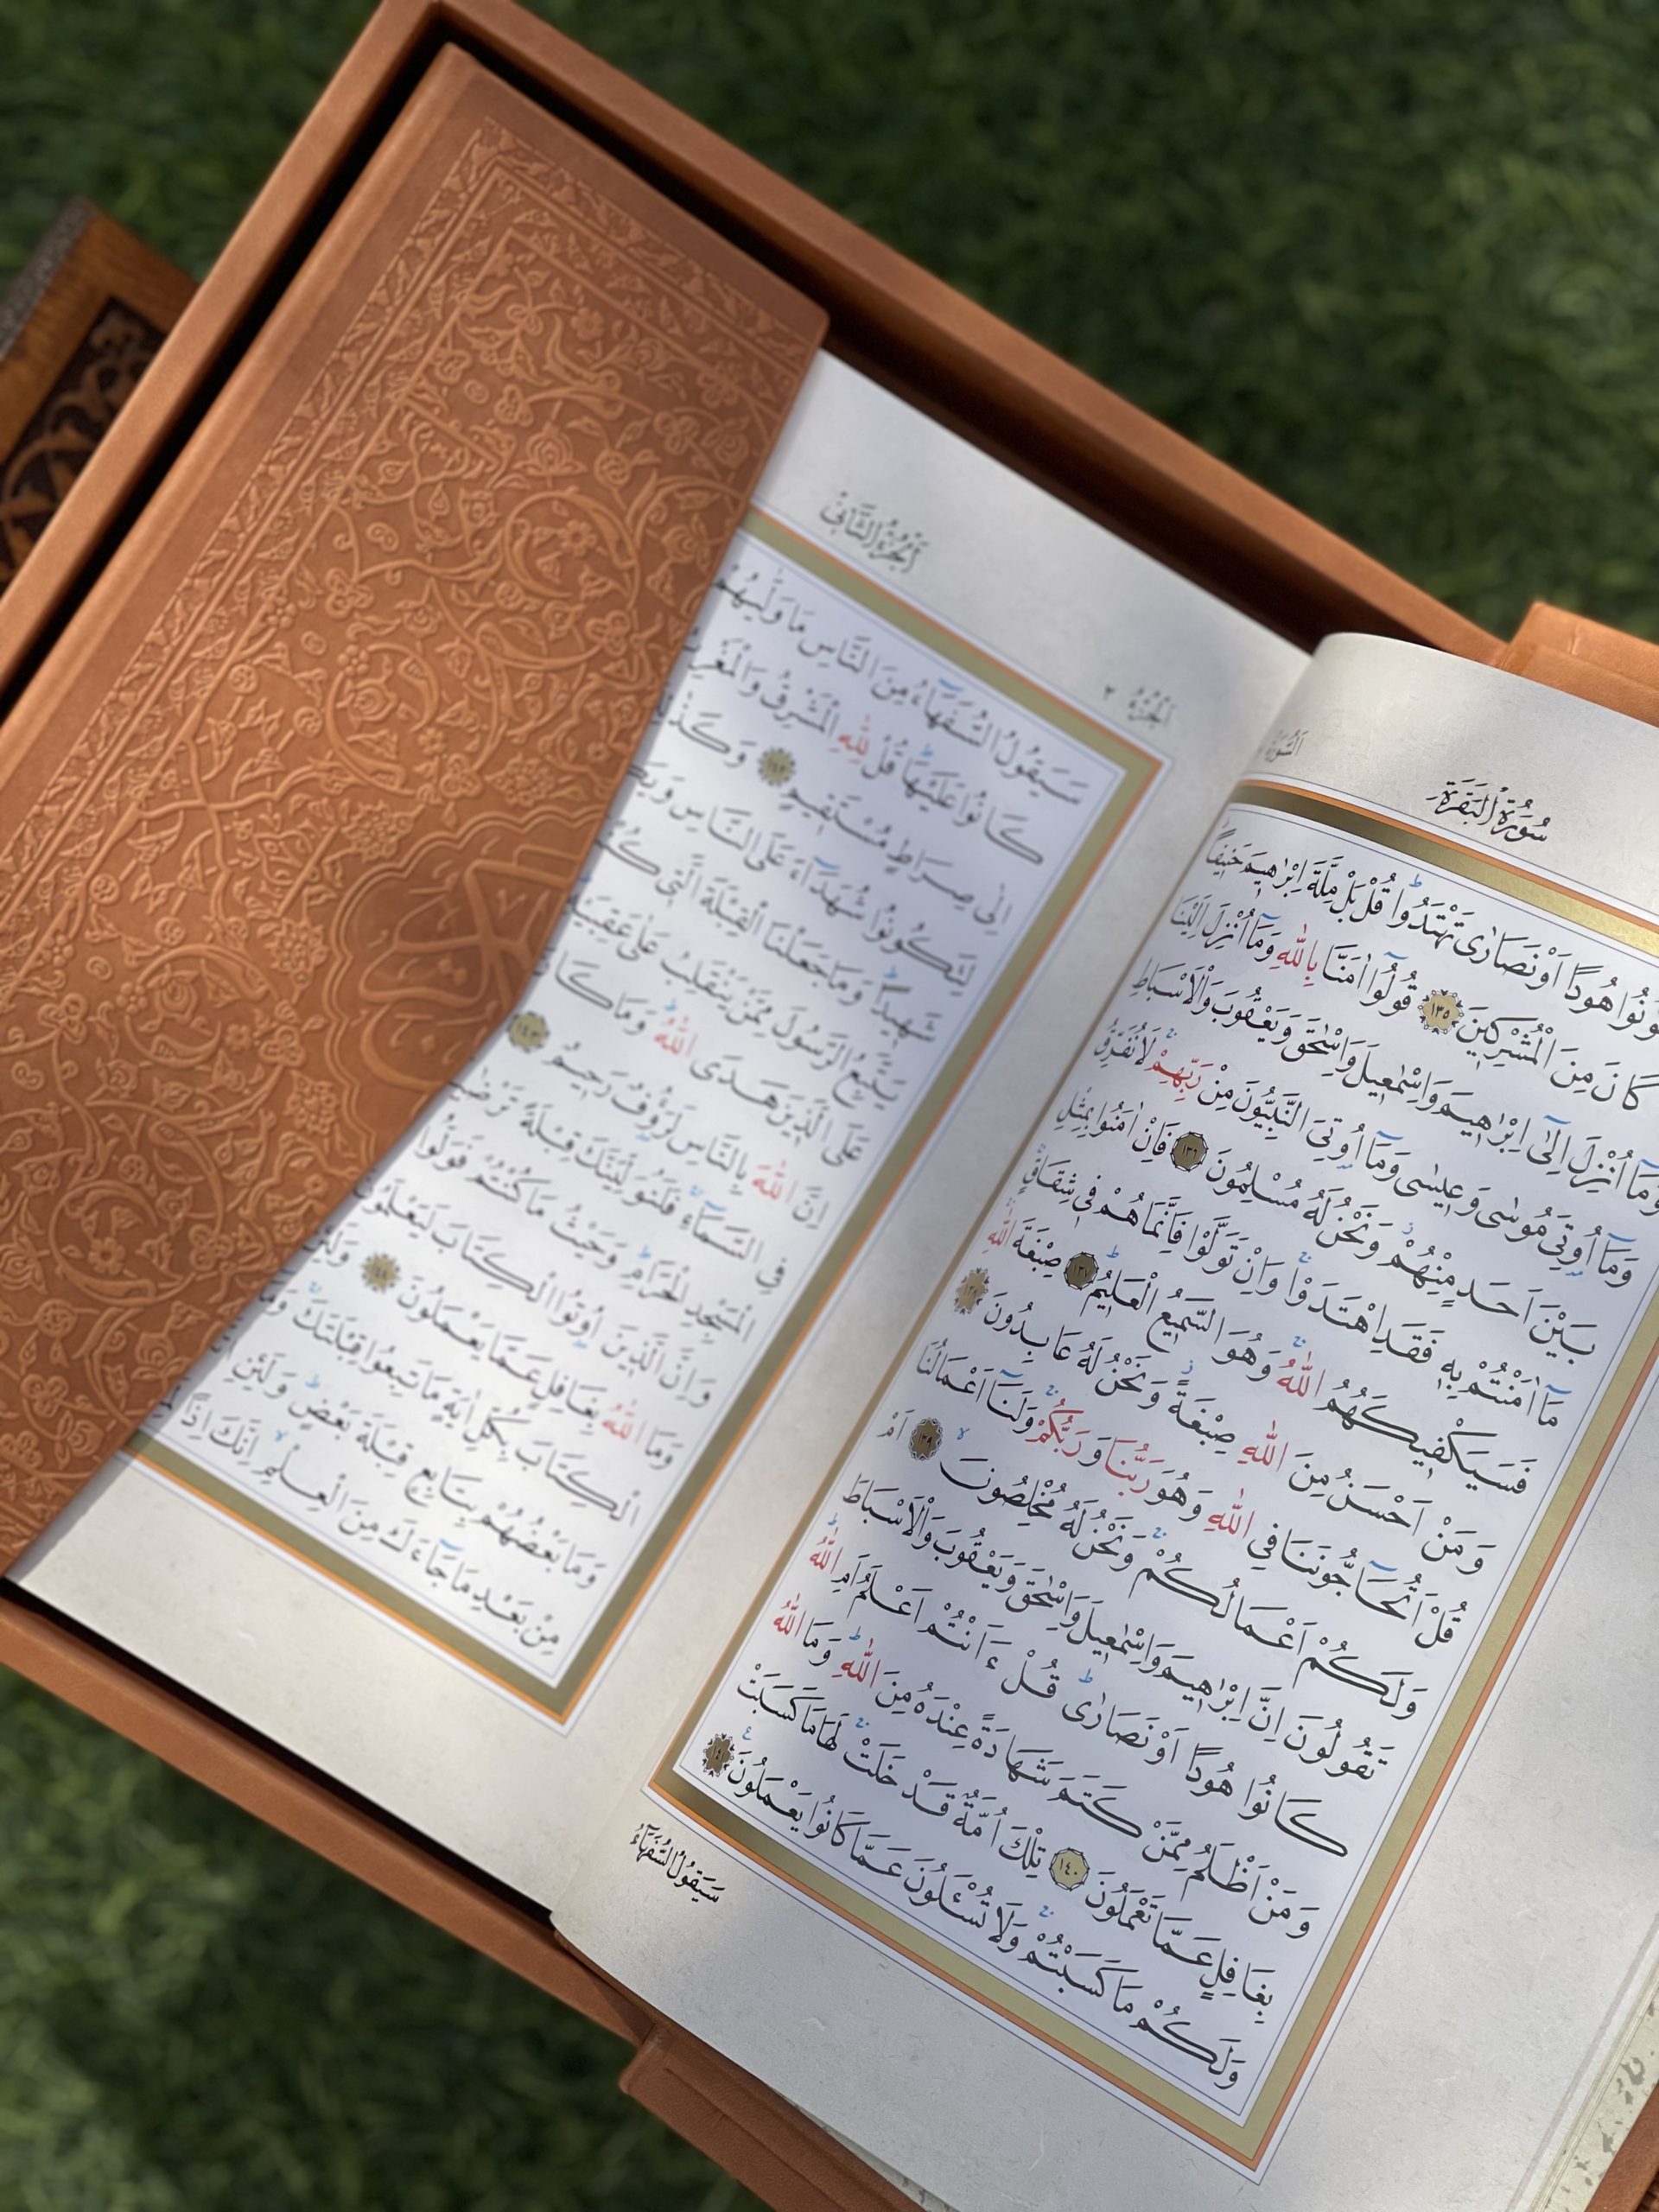 سُورَةُ الْبَقَرَةِ
السُّورَةُ
كُونُوا هُودًا اَوْ نَصَارٰى تَهْتَدُواۜ قُلْ بَلْ مِلَّةَ اِبْرٰهٖيمَ حَنٖيفًاۜ
كَانَ مِنَ الْمُشْرِكٖينَ ﴿١٣٥﴾ قُولُٓوا اٰمَنَّا بِاللّٰهِ وَمَٓا اُنْزِلَ اِلَيْنَا
وَمَٓا اُنْزِلَ اِلٰٓى اِبْرٰهٖيمَ وَاِسْمٰعٖيلَ وَاِسْحٰقَ وَيَعْقُوبَ وَالْاَسْبَاطِ
وَمَٓا اُو۫تِيَ مُوسٰى وَعٖيسٰى وَمَٓا اُو۫تِيَ النَّبِيُّونَ مِنْ رَبِّهِمْۚ لَا نُفَرِّقُ
بَيْنَ اَحَدٍ مِنْهُمْۘ وَنَحْنُ لَهُ مُسْلِمُونَ ﴿١٣٦﴾ فَاِنْ اٰمَنُوا بِمِثْلِ
مَٓا اٰمَنْتُمْ بِهٖ فَقَدِ اهْتَدَوْاۚ وَاِنْ تَوَلَّوْا فَاِنَّمَا هُمْ فٖي شِقَاقٍۚ
فَسَيَكْفٖيكَهُمُ اللّٰهُۚ وَهُوَ السَّمٖيعُ الْعَلٖيمُۜ ﴿١٣٧﴾ صِبْغَةَ اللّٰهِۚ
وَمَنْ اَحْسَنُ مِنَ اللّٰهِ صِبْغَةًۘ وَنَحْنُ لَهُ عَابِدُونَ ﴿١٣٨﴾
قُلْ اَتُحَٓاجُّونَنَا فِي اللّٰهِ وَهُوَ رَبُّنَا وَرَبُّكُمْۚ وَلَنَٓا اَعْمَالُنَا
وَلَكُمْ اَعْمَالُكُمْۚ وَنَحْنُ لَهُ مُخْلِصُونَۙ ﴿١٣٩﴾ اَمْ
تَقُولُونَ اِنَّ اِبْرٰهٖيمَ وَاِسْمٰعٖيلَ وَاِسْحٰقَ وَيَعْقُوبَ وَالْاَسْبَاطَ
كَانُوا هُودًا اَوْ نَصَارٰىۜ قُلْ ءَاَنْتُمْ اَعْلَمُ اَمِ اللّٰهُۜ
وَمَنْ اَظْلَمُ مِمَّنْ كَتَمَ شَهَادَةً عِنْدَهُ مِنَ اللّٰهِۜ وَمَا اللّٰهُ
بِغَافِلٍ عَمَّا تَعْمَلُونَ ﴿١٤٠﴾ تِلْكَ اُمَّةٌ قَدْ خَلَتْۚ لَهَا مَا كَسَبَتْ
وَلَكُمْ مَا كَسَبْتُمْۚ وَلَا تُسْـَٔلُونَ عَمَّا كَانُوا يَعْمَلُونَ ﴿١٤١﴾
سَيَقُولُ السُّفَهَٓاءُ
اَلْجُزْءُ الثَّانٖي
اَلْجُزْءُ ٢
سَيَقُولُ السُّفَهَٓاءُ مِنَ النَّاسِ مَا وَلّٰيهُمْ
كَانُوا عَلَيْهَاۜ قُلْ لِلّٰهِ الْمَشْرِقُ وَالْمَغْرِبُ
اِلٰى صِرَاطٍ مُسْتَقٖيمٍ ﴿١٤٢﴾ وَكَذٰلِكَ
لِتَكُونُوا شُهَدَٓاءَ عَلَى النَّاسِ وَيَكُونَ
شَهٖيدًاۜ وَمَا جَعَلْنَا الْقِبْلَةَ الَّتٖي كُنْتَ
يَتَّبِعُ الرَّسُولَ مِمَّنْ يَنْقَلِبُ عَلٰى عَقِبَيْهِ
عَلَى الَّذٖينَ هَدَى اللّٰهُۜ وَمَا كَانَ
اِنَّ اللّٰهَ بِالنَّاسِ لَرَؤُ۫فٌ رَحٖيمٌ ﴿١٤٣﴾
فِي السَّمَٓاءِۚ فَلَنُوَلِّيَنَّكَ قِبْلَةً تَرْضٰيهَا
الْمَسْجِدِ الْحَرَامِۜ وَحَيْثُ مَا كُنْتُمْ فَوَلُّوا
وَاِنَّ الَّذٖينَ اُو۫تُوا الْكِتَابَ لَيَعْلَمُونَ
وَمَا اللّٰهُ بِغَافِلٍ عَمَّا يَعْمَلُونَ ﴿١٤٤﴾ وَلَئِنْ
الْكِتَابَ بِكُلِّ اٰيَةٍ مَا تَبِعُوا قِبْلَتَكَۚ وَمَٓا
وَمَا بَعْضُهُمْ بِتَابِعٍ قِبْلَةَ بَعْضٍۜ وَلَئِنِ
مِنْ بَعْدِ مَا جَٓاءَكَ مِنَ الْعِلْمِۙ اِنَّكَ اِذًا لَمِنَ